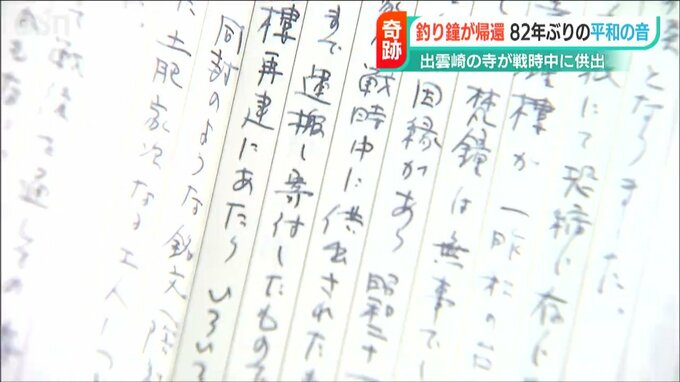 奇跡
釣り鐘が帰還 82年ぶりの平和の音
出雲崎の寺が戦時中に供出
となりました。
にて恐縮に存じ
楼が一昨秋の台
梵鐘は無事でし
因縁があり 昭和二十
戦時中に供出された
まで運搬し寄付したもので
楼再建にあたり いろいろ
同封のような銘文
土肥家次なる工人
て戦後を通し